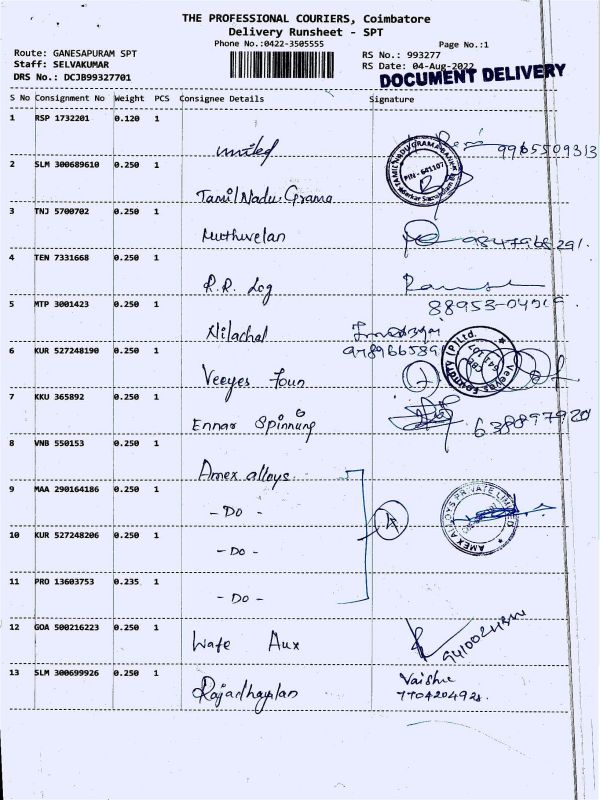 THE PROFESSIONAL COURIERS, Coimbatore
Delivery Runsheet - SPT
Phone No.:0422-3505555
Page No.:1
Route: GANESAPURAM SPT
RS No.: 993277
Staff: SELVAKUMAR
RS Date: 04-Aug-2022
DRS No.: DCJB99327701
DOCUMENT DELIVERY
S No Consignment No Weight PCS Consignee Details Signature
1 RSP 1732201 0.120 1
united 9965509313
2 SLM 300689610 0.250 1
TAMILNADU GRAMA PIN - 641107
Tamil Nadu Grama
3 TNJ 5700702 0.250 1
Muthuvelan
4 TEN 7331668 0.250 1
R.R. Log
5 MTP 3001423 0.250 1
Nilachal
6 KUR 527248190 0.250 1
Veeyes Foundry (P) Ltd. 641 107
Veeyes Foun
7 KKU 365892 0.250 1
Ennar Spinning 638897920
8 VNB 550153 0.250 1
Amex alloys
9 MAA 290164186 0.250 1
AMEX ALLOYS PRIVATE LIMITED
- Do -
10 KUR 527248206 0.250 1
- Do -
11 PRO 13603753 0.235 1
- Do -
12 GOA 500216223 0.250 1
Aux
13 SLM 300699926 0.250 1
Vaishu